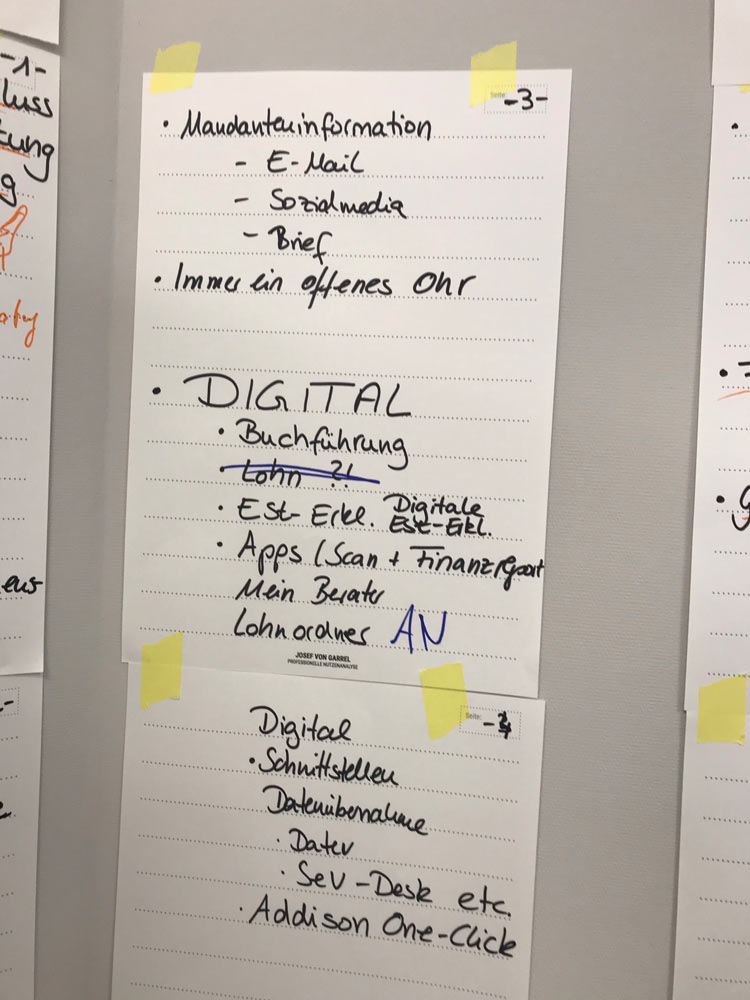 -1-
luss
tung
g
eur
Seite: -3-
• Mandanteninformation
- E-Mail
- Sozialmedia
- Brief
• Immer ein offenes Ohr
• DIGITAL
• Buchführung
• Lohn ?!
• Est-Erkl. Digitale Est-Erkl.
• Apps (Scan + Finanzreport
Mein Berater
Lohnordner AN
JOSEF VON GARREL
PROFESSIONELLE NUTZENANALYSE
Seite: -4-
Digital
• Schnittstellen
Datenübernahme
• Datev
• Sev-Desk etc.
• Addison One-Click